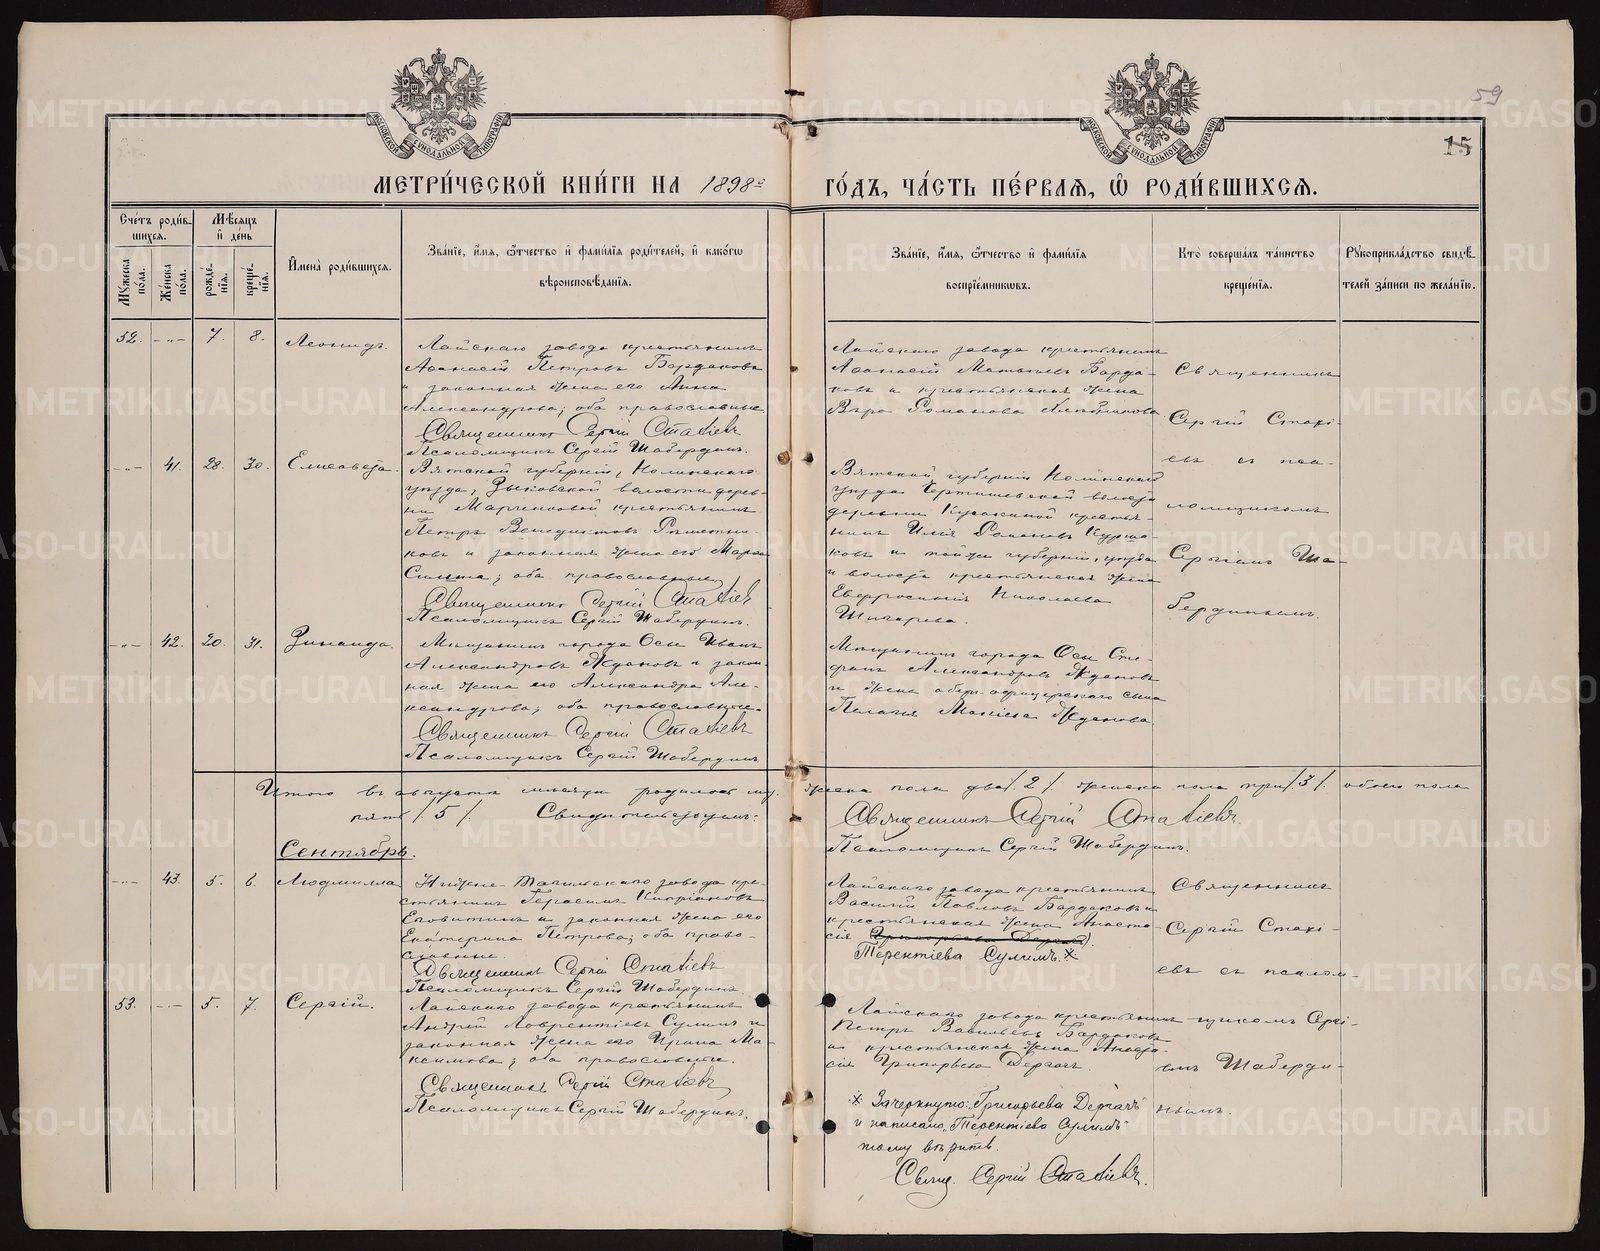 59
15
МОСКОВСКОЙ СУНОДАЛЬНОЙ ТИПОГРАФИИ
МОСКОВСКОЙ СУНОДАЛЬНОЙ ТИПОГРАФИИ
МЕТРИ́ЧЕСКОЙ КНИ́ГИ НА 1898 г ГО́ДЪ, ЧА́СТЬ ПЕ́РВАЯ, Ѡ РОДИ́ВШИХСЯ.
Сче́тъ роди́вшихся.
Му́жеска по́ла.
Же́нска по́ла.
Мѣ́сяцъ и де́нь
рожде́нїя.
креще́нїя.
Имена̀ роди́вшихся.
Зва́нїе, и́мя, ѻ҆́тчество и фами́лїя роди́телей, и како́гѡ вѣроисповѣ́данїя.
Зва́нїе, и́мя, ѻ҆́тчество и фами́лїя воспрїе́мникѡвъ.
Кто̀ соверша́лъ та́инство креще́нїя.
Рукоприкла́дство свидѣ́телей за́писи по жела́нїю.
52. -"- 7. 8. Леонидъ.
Лайскаго завода крестьянинъ
Аѳанасій Петровъ Бардаковъ
и законная жена его Анна
Александрова; оба православные
Священникъ Сергій Стахіевъ
Псаломщикъ Сергій Шабердинъ.
Лайскаго завода крестьянинъ
Аѳанасій Матвѣевъ Барда-
ковъ и крестьянская жена
Вѣра Романова
Священникъ
Сергій Стахі-
евъ съ пса-
ломщикомъ
Сергіемъ Ша-
бердинымъ.
-"- 41. 28. 30. Елисавета.
Вятской губерніи, Нолинскаго
уѣзда, Зыковской волости дерев-
ни Марченковой крестьянинъ
Петръ Венедиктовъ
ковъ и законная жена его Марѳа
; оба православные
Священникъ Сергій Стахіевъ
Псаломщикъ Сергій Шабердинъ.
Вятской губерніи Нолинскаго
уѣзда волости
деревни крестья-
нинъ Илія Романовъ
ковъ и той же губерніи, уѣзда
и волости крестьянская жена
Евфросинія Николаева
Шигарева.
-"- 42. 20. 31. Зинаида.
Мѣщанинъ города Осы Иванъ
Александровъ Ждановъ и закон-
ная жена его Александра Але-
ксандрова; оба православные.
Священникъ Сергій Стахіевъ
Псаломщикъ Сергій Шабердинъ
Мѣщанинъ города Осы Сте-
фанъ Александровъ Ждановъ
и жена оберъ-офицерскаго сына
Пелагія Жданова
Итого въ августѣ мѣсяцѣ родилось муж
жеска пола два /2/ женска пола три /3/, обоего пола
пять /5/. Свидѣтельствуемъ:
Священникъ Сергій Стахіевъ.
Псаломщикъ Сергій Шабердинъ.
Сентябрь.
-"- 43. 5. 6. Людмилла
Нижне-Тагильскаго завода кре-
стьянинъ Герасимъ Кипріановъ
и законная жена его
Екатерина Петрова; оба право-
славные.
Священникъ Сергій Стахіевъ
Псаломщикъ Сергій Шабердинъ.
Лайскаго завода крестьянинъ
Василій Павловъ Бардаковъ и
крестьянская жена Анаста-
сія Григорьева Дергачъ.
Терентіева Сулимъ. ×
Священникъ
Сергій Стахі-
евъ съ псалом-
щикомъ Сергі-
емъ Шаберди-
нымъ.
53. -"- 5. 7. Сергій.
Лайскаго завода крестьянинъ
Андрей Лаврентіевъ Сулимъ и
законная жена его Ирина Ма-
ксимова; оба православные.
Священникъ Сергій Стахіевъ
Псаломщикъ Сергій Шабердинъ.
Лайскаго завода крестьянинъ
Петръ Васильевъ Бардаковъ
и крестьянская жена Анаста-
сія Григорьева Дергачъ.
× Зачеркнуто: „Григорьева Дергачъ"
и написано „Терентіева Сулимъ"
тому вѣрить.
Свящ. Сергій Стахіевъ.
METRIKI.GASO-URAL.RU